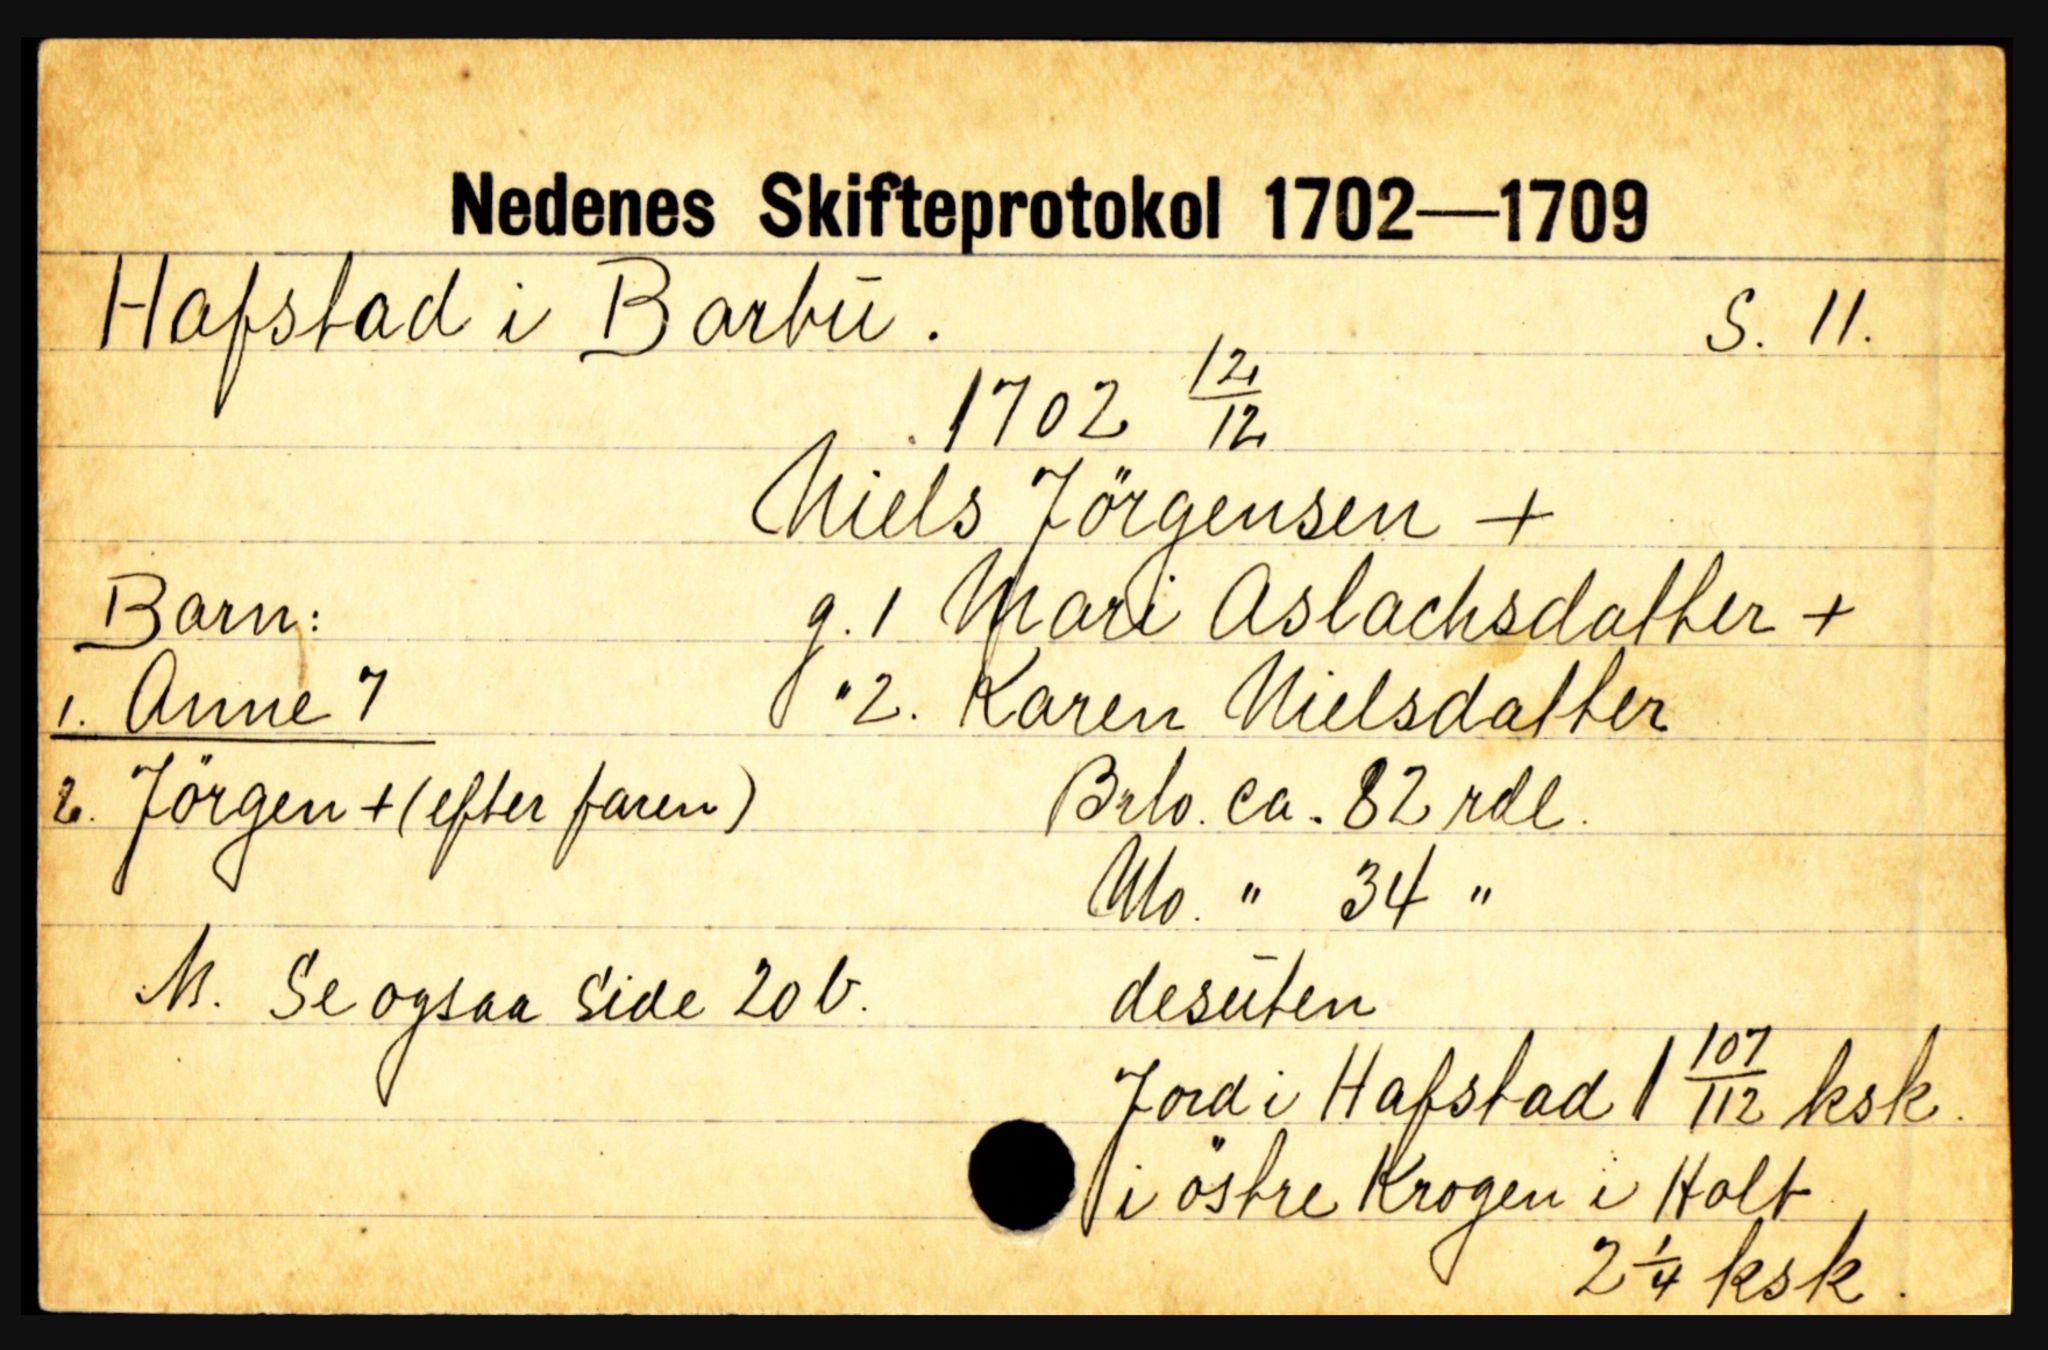 Nedenes Skifteprotokol 1702—1709
Hafstad i Barbū. S. 11.
1702 12/12
Niels Jörgensen +
g. 1 Mari Aslachsdatter +
"2. Karen Nielsdatter
Barn:
1. Anne 7
2. Jörgen + (efter faren)
Brlo. ca. 82 rdl.
Mo. " 34 "
M. Se ogsaa Side 20 b.
desūten
Jord i Hafstad 1 107/112 ksk.
i östre Krogen i Holt
2 1/4 ksk.